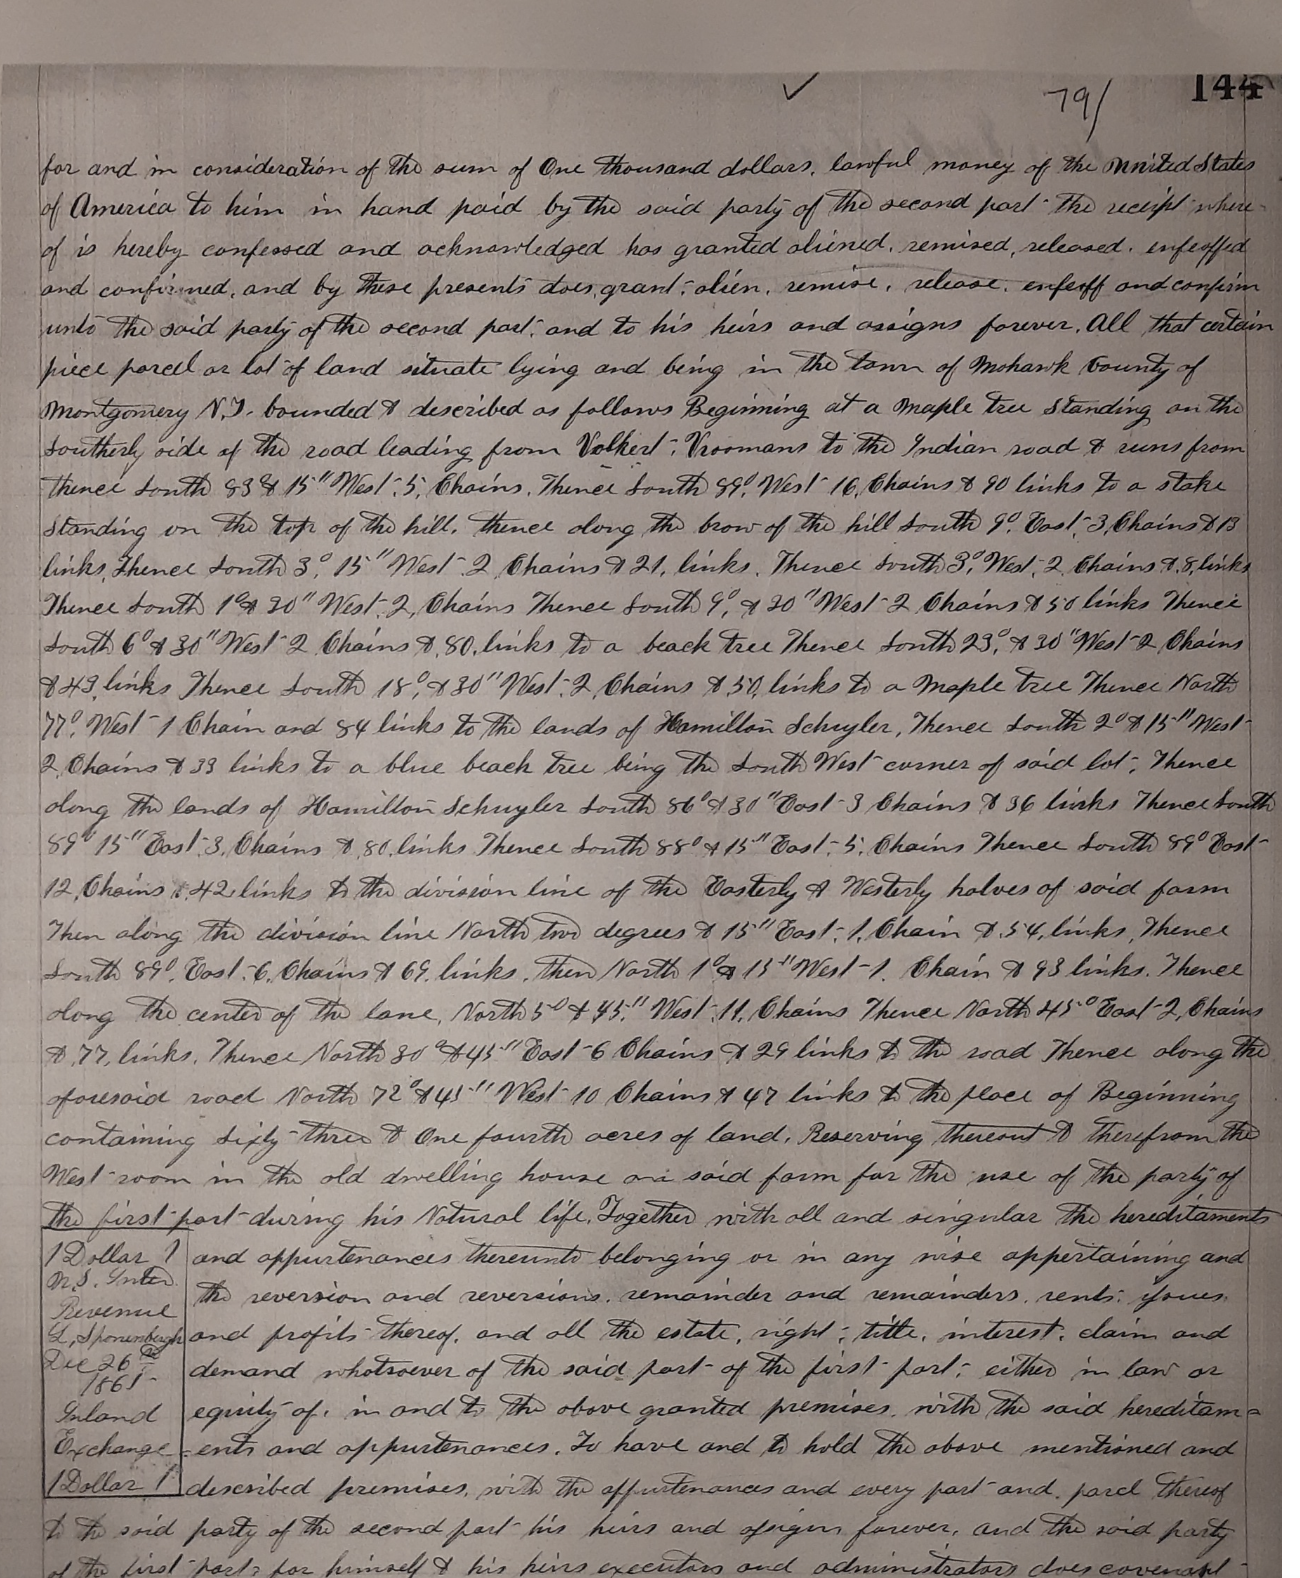 79/
144
for and in consideration of the sum of One thousand dollars, lawful money of the United States
of America to him in hand paid by the said party of the second part the receipt where-
of is hereby confessed and acknowledged has granted aliened, remised, released, enfeoffed
and confirmed, and by these presents does, grant, alien, remise, release, enfeoff and confirm
unto the said party of the second part, and to his heirs and assigns forever, All that certain
piece parcel or lot of land situate lying and being in the town of Mohawk County of
Montgomery N.Y. bounded & described as follows Beginning at a Maple tree Standing on the
Southerly side of the road leading from Volkert, Vroomans to the Indian road & runs from
thence South 83° & 15" West, 5, Chains, Thence South 89°, West 16, Chains & 90 links to a stake
Standing on the top of the hill, thence along the brow of the hill South 9°, East, 3, Chains & 13
links, Thence South 3°, 15" West 2 Chains & 21, links, Thence South 3°, West, 2 Chains & ,8, links
Thence South 1° & 30" West, 2, Chains Thence South 9°, & 30" West 2 Chains & 50 links Thence
South 6° & 30" West 2 Chains & ,80, links to a beach tree Thence South 23°, & 30" West 2, Chains
& 43, links Thence South 18°, & 30" West, 2, Chains & ,50, links to a Maple tree Thence North
77°, West 1 Chain and 84 links to the lands of Hamilton Schuyler, Thence South 2° & 15" West
2, Chains & 33 links to a blue beach tree being the South West corner of said lot, Thence
along the lands of Hamilton Schuyler South 86° & 30" East 3 Chains & 36 links Thence South
89° 15" East, 3, Chains & ,80, links Thence South 88° & 15" East, 5, Chains Thence South 89° East
12, Chains & ,42 links to the division line of the Easterly & Westerly halves of said farm
Then along the division line North two degrees & 15" East, 1, Chain & ,54, links, Thence
South 89°, East, 6, Chains & 69, links, then North 1° & 15" West 1, Chain & 93 links, Thence
along the center of the lane, North 5° & 45," West, 11, Chains Thence North 45° East 2, Chains
& ,77, links, Thence North 30° & 45" East 6 Chains & 29 links to the road Thence along the
aforesaid road North 72° & 45" West 10 Chains & 47 links to the place of Beginning
containing Sixty three & One fourth acres of land, Reserving thereout & therefrom the
West room in the old dwelling house on said farm for the use of the party of
the first part during his Natural life, Together with all and singular the hereditaments
1 Dollar 1
Inter.
Revenue
Dec 26th
Inland
Exchange
1 Dollar 1
and appurtenances thereunto belonging or in any wise appertaining and
the reversion and reversions, remainder and remainders, rents, issues,
and profits thereof, and all the estate, right, title, interest, claim and
demand whatsoever of the said part of the first part, either in law or
equity of, in and to the above granted premises, with the said hereditam-
ents and appurtenances, To have and to hold the above mentioned and
described premises, with the appurtenances and every part and parcel thereof
to the said party of the second part his heirs and assigns forever, and the said party
of the first part, for himself & his heirs executors and administrators does covenant